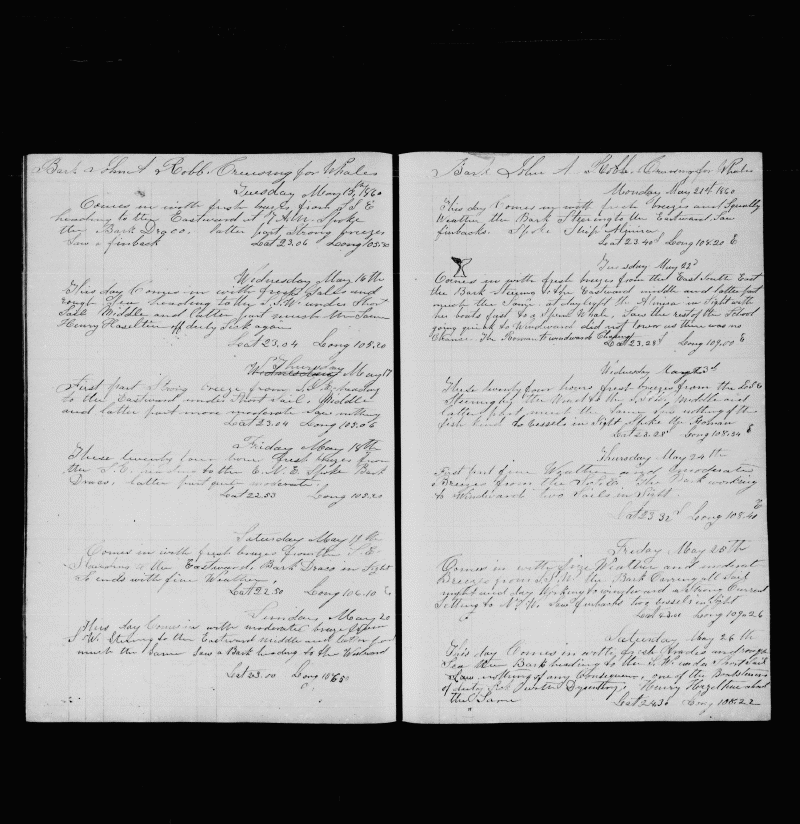 Bark John A Robb Cruising for Whales
Tuesday May 15th 1860
Comes in with fresh brezes from S E
heading to the Eastward at 7 A.M. Spoke
the Bark Draco. latter part Strong breezes
Saw a finback Lat 23.06 Loong 105.20
Wednesday May 16th
This day Comes in with fresh Gales and
rough Sea heading to the S.W. under Short
Sail Middle and latter part much the Same
Henry Haseltine off duty Sick again
Lat 23.04 Long 105.20
Thursday
Wednesday May 17
First part Strong breeze from S.E. heading
to the Eastward under Short Sail, Middle
and latter part more moderate Saw nothing
Lat 23.04 Long 105.06
Friday May 18th
These twenty four hours fresh brezes from
the S.E. heading to the E.N.E. Spoke Bark
Draco, latter part quite moderate.
Lat 22.53 Long 105.20
Saturday May 19th
Comes in with fresh brezes from the S.E.
Steering to the Eastward, Bark Draco in Sight
So ends with fine Weather,
Lat 22.50 Long 106.10 E
Sunday May 20
This day Comes in with moderate breze from
S.W. Stering to the Eastward middle and latter part
much the Same Saw a Bark heading to the Westward
Lat 23.00 Long
Bark John A. Robb Cruising for Whales
Monday May 21st 1860
This day Comes in with fresh brezes and Squally
Weather the Bark Stering to the Eastward Saw
finbacks. Spoke Ship Almira
Lat 23.40 Long 108.20 E
Tuesday May 22d
Comes in with fresh brezes from the East South East
the Bark Stering to the Eastward middle and latter part
much the Same at daylight the Almira in Sight with
her boats fast to a Sperm Whale, Saw the rest of the School
going quick to Windward did not lower as there was no
Chance. The Roman to windward Chasing
Lat 23.28 Long 109.00 E
Wednesday May 23d
These twenty four hours fresh brezes from the
Steering by the Wind to the middle and
latter part much the Same Saw nothing of the
fish kind to Vessels in Sight Spoke the Roman
Lat 23.28 Long 108.54 E
Thursday May 24th
First part fine Weather and moderate
Brezes from the the Bark working
to Windward two Sails in Sight.
Lat 23.32 Long 108.41 E
Friday May 25th
Comes in with fine Weather and moderat
Breezes from S.S.W. the Bark Carring all Sail
night and day Working to windward a Strong Current
Setting to N.W. Saw finbacks two vessels in Sight
Lat Long 109.26
Saturday May 26th
This day Comes in with fresh trades and rough
Sea the Bark heading to the S.W. under Short Sail
Saw nothing of any Consequence, one of the Boatsteerers
of duty Sick with Dysentery, Henry Hazeltine about
the Same Lat 24.36 Long 108.22